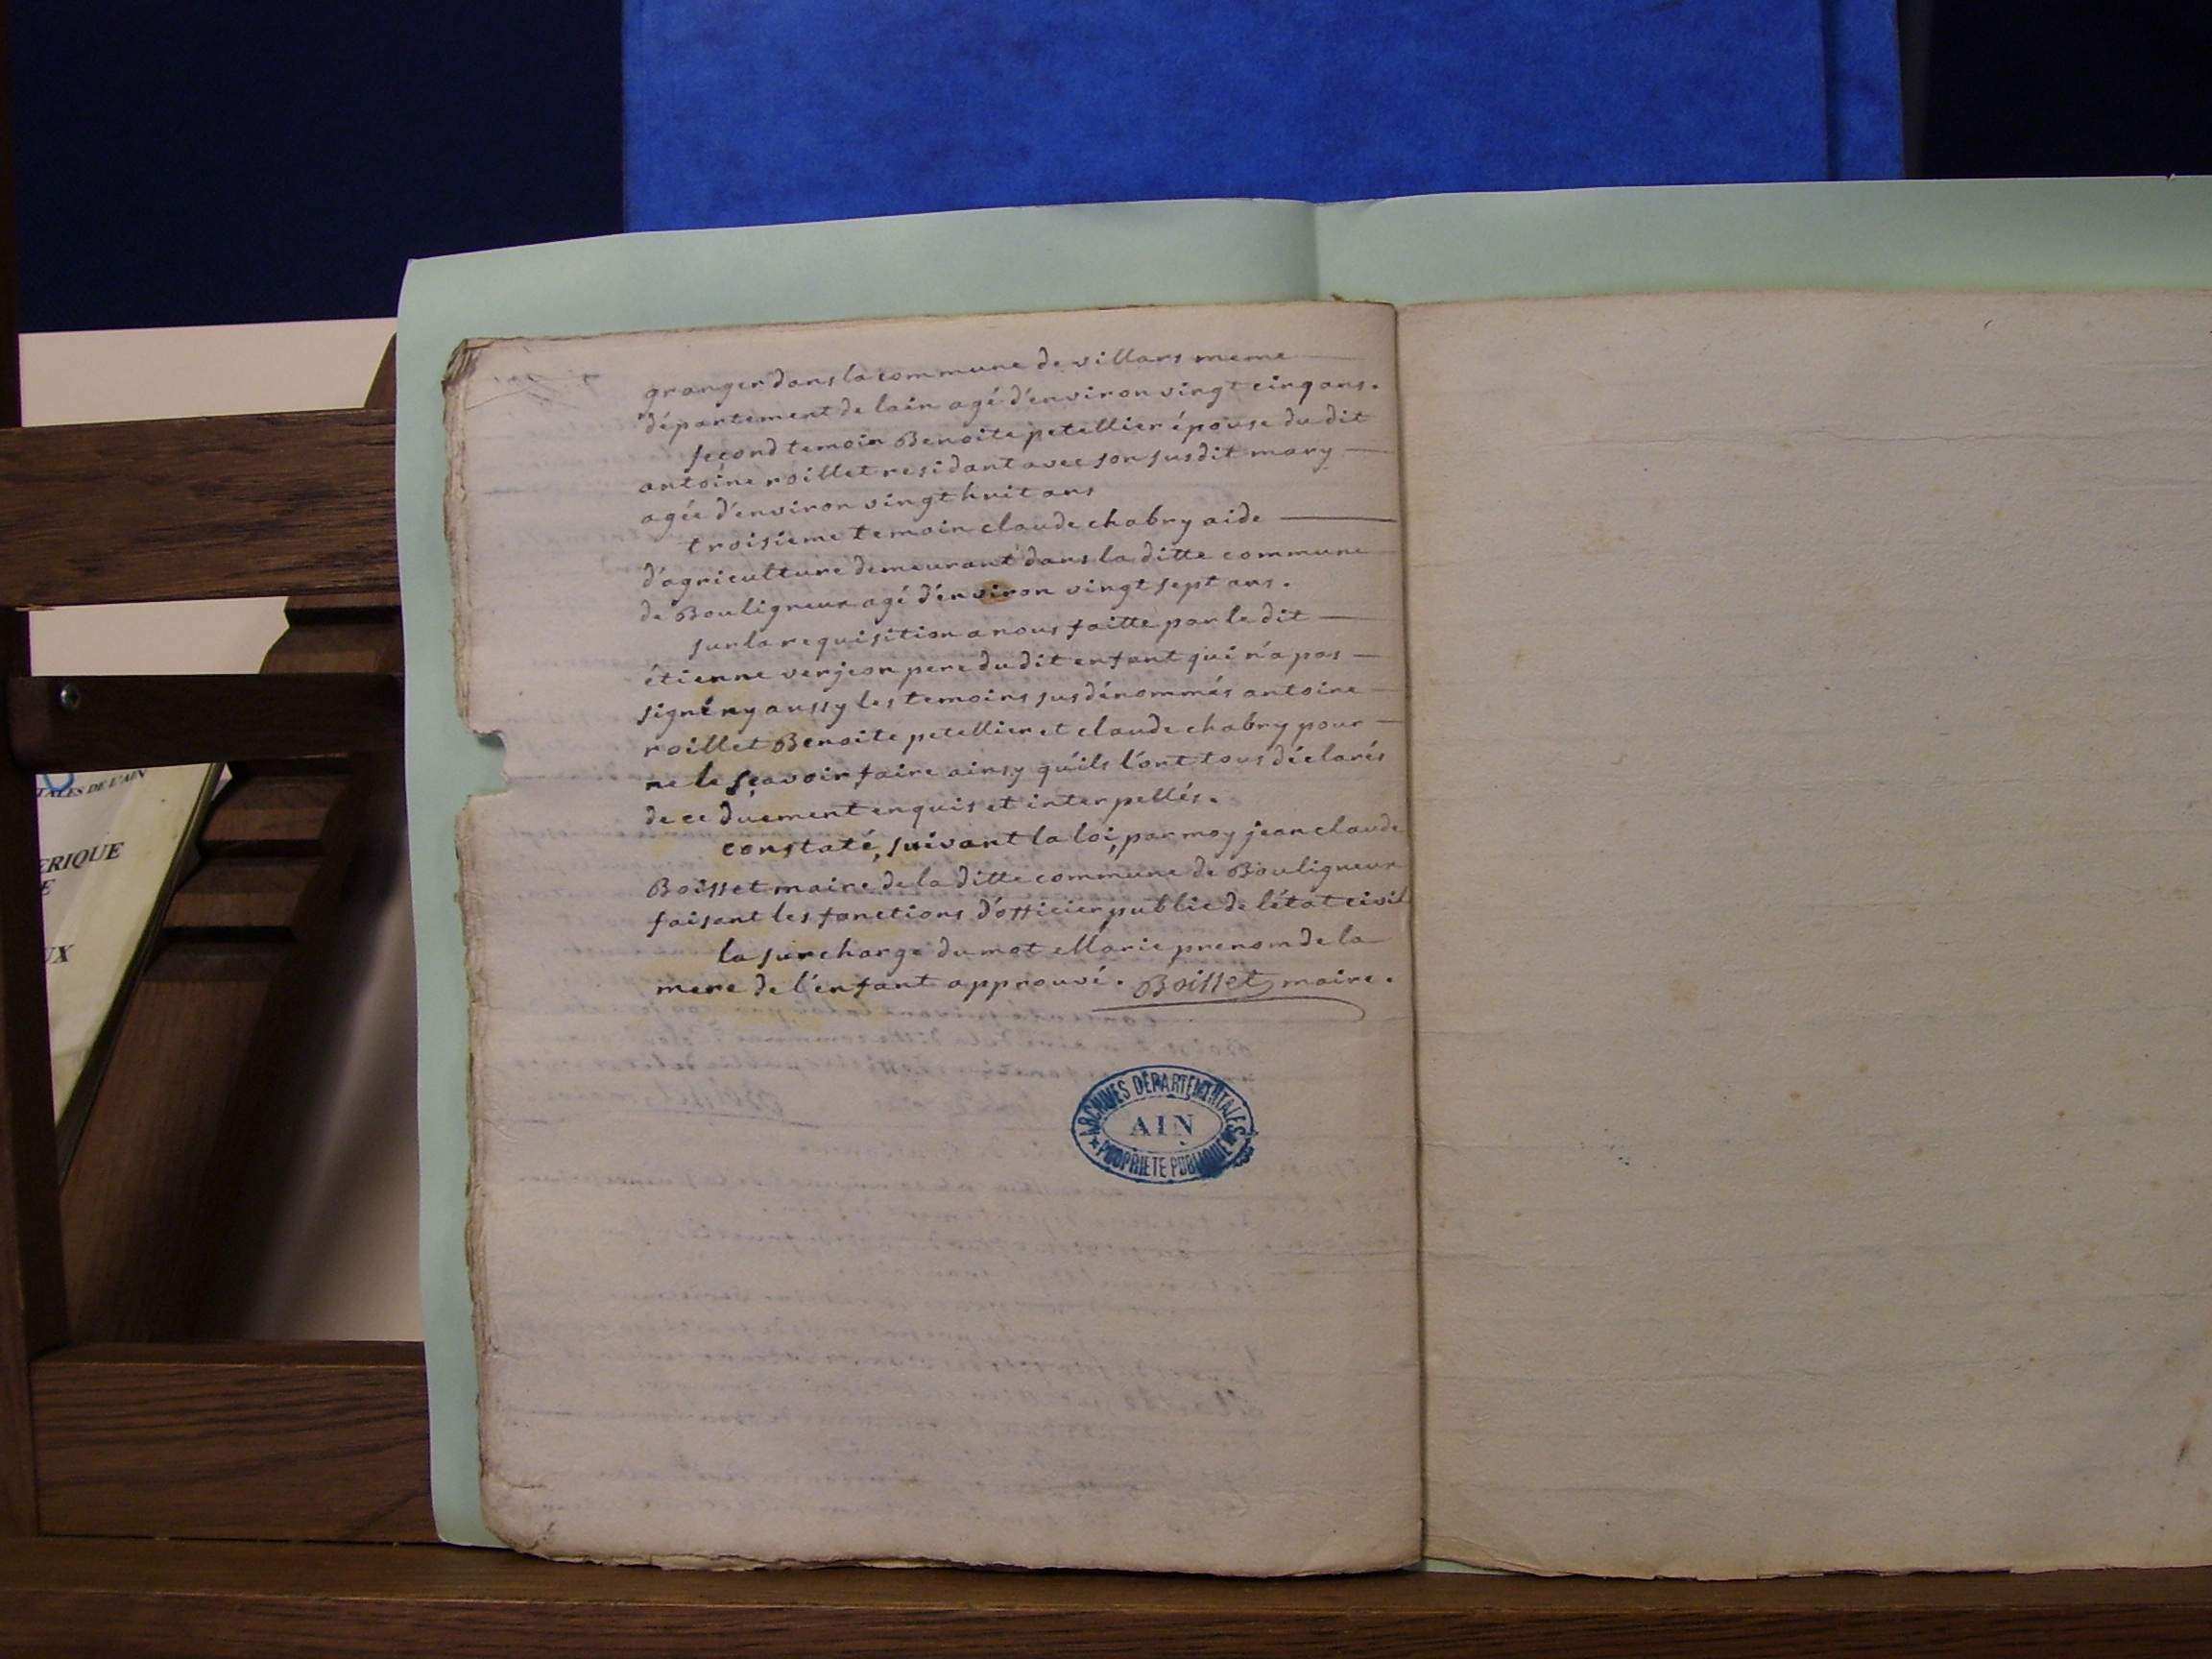 granger dans la commune de villars meme
département de lain agé d'environ vingt cinq ans.
second temoin Benoite petellier épouse du dit
antoine roillet residant avec son susdit mary
agée d'environ vingt huit ans
troisieme temoin claude chabry aide
d'agriculture demeurant dans la ditte commune
de Bouligneux agé d'environ vingt sept ans.
sur la requisition a nous faitte par le dit
étienne verjeon pere du dit enfant qui n'a pas
signé ny aussy les temoins susdénommés antoine
roillet Benoite petellier et claude chabry pour
ne le sçavoir faire ainsy qu'ils l'ont tous déclarés
de ce duement enquis et interpellés.
constaté, suivant la loi, par moy jean claude
Boisset maire de la ditte commune de Bouligneux
faisant les fonctions d'officier public de l'état civil
la surcharge du mot Marie prenom de la
mere de l'enfant approuvé. Boisset maire.
ARCHIVES DÉPARTEMENTALES
AIN
PROPRIETE PUBLIQUE
TALES DE L'AIN
ERIQUE
E
UX